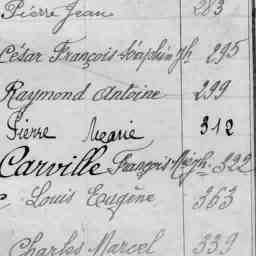 Pierre Jean 283
César François Séraphin Jh 295
Raymond Antoine 299
Pierre Marie 312
Carville François Migh. 322
Louis Eugène 363
Charles Marcel 339